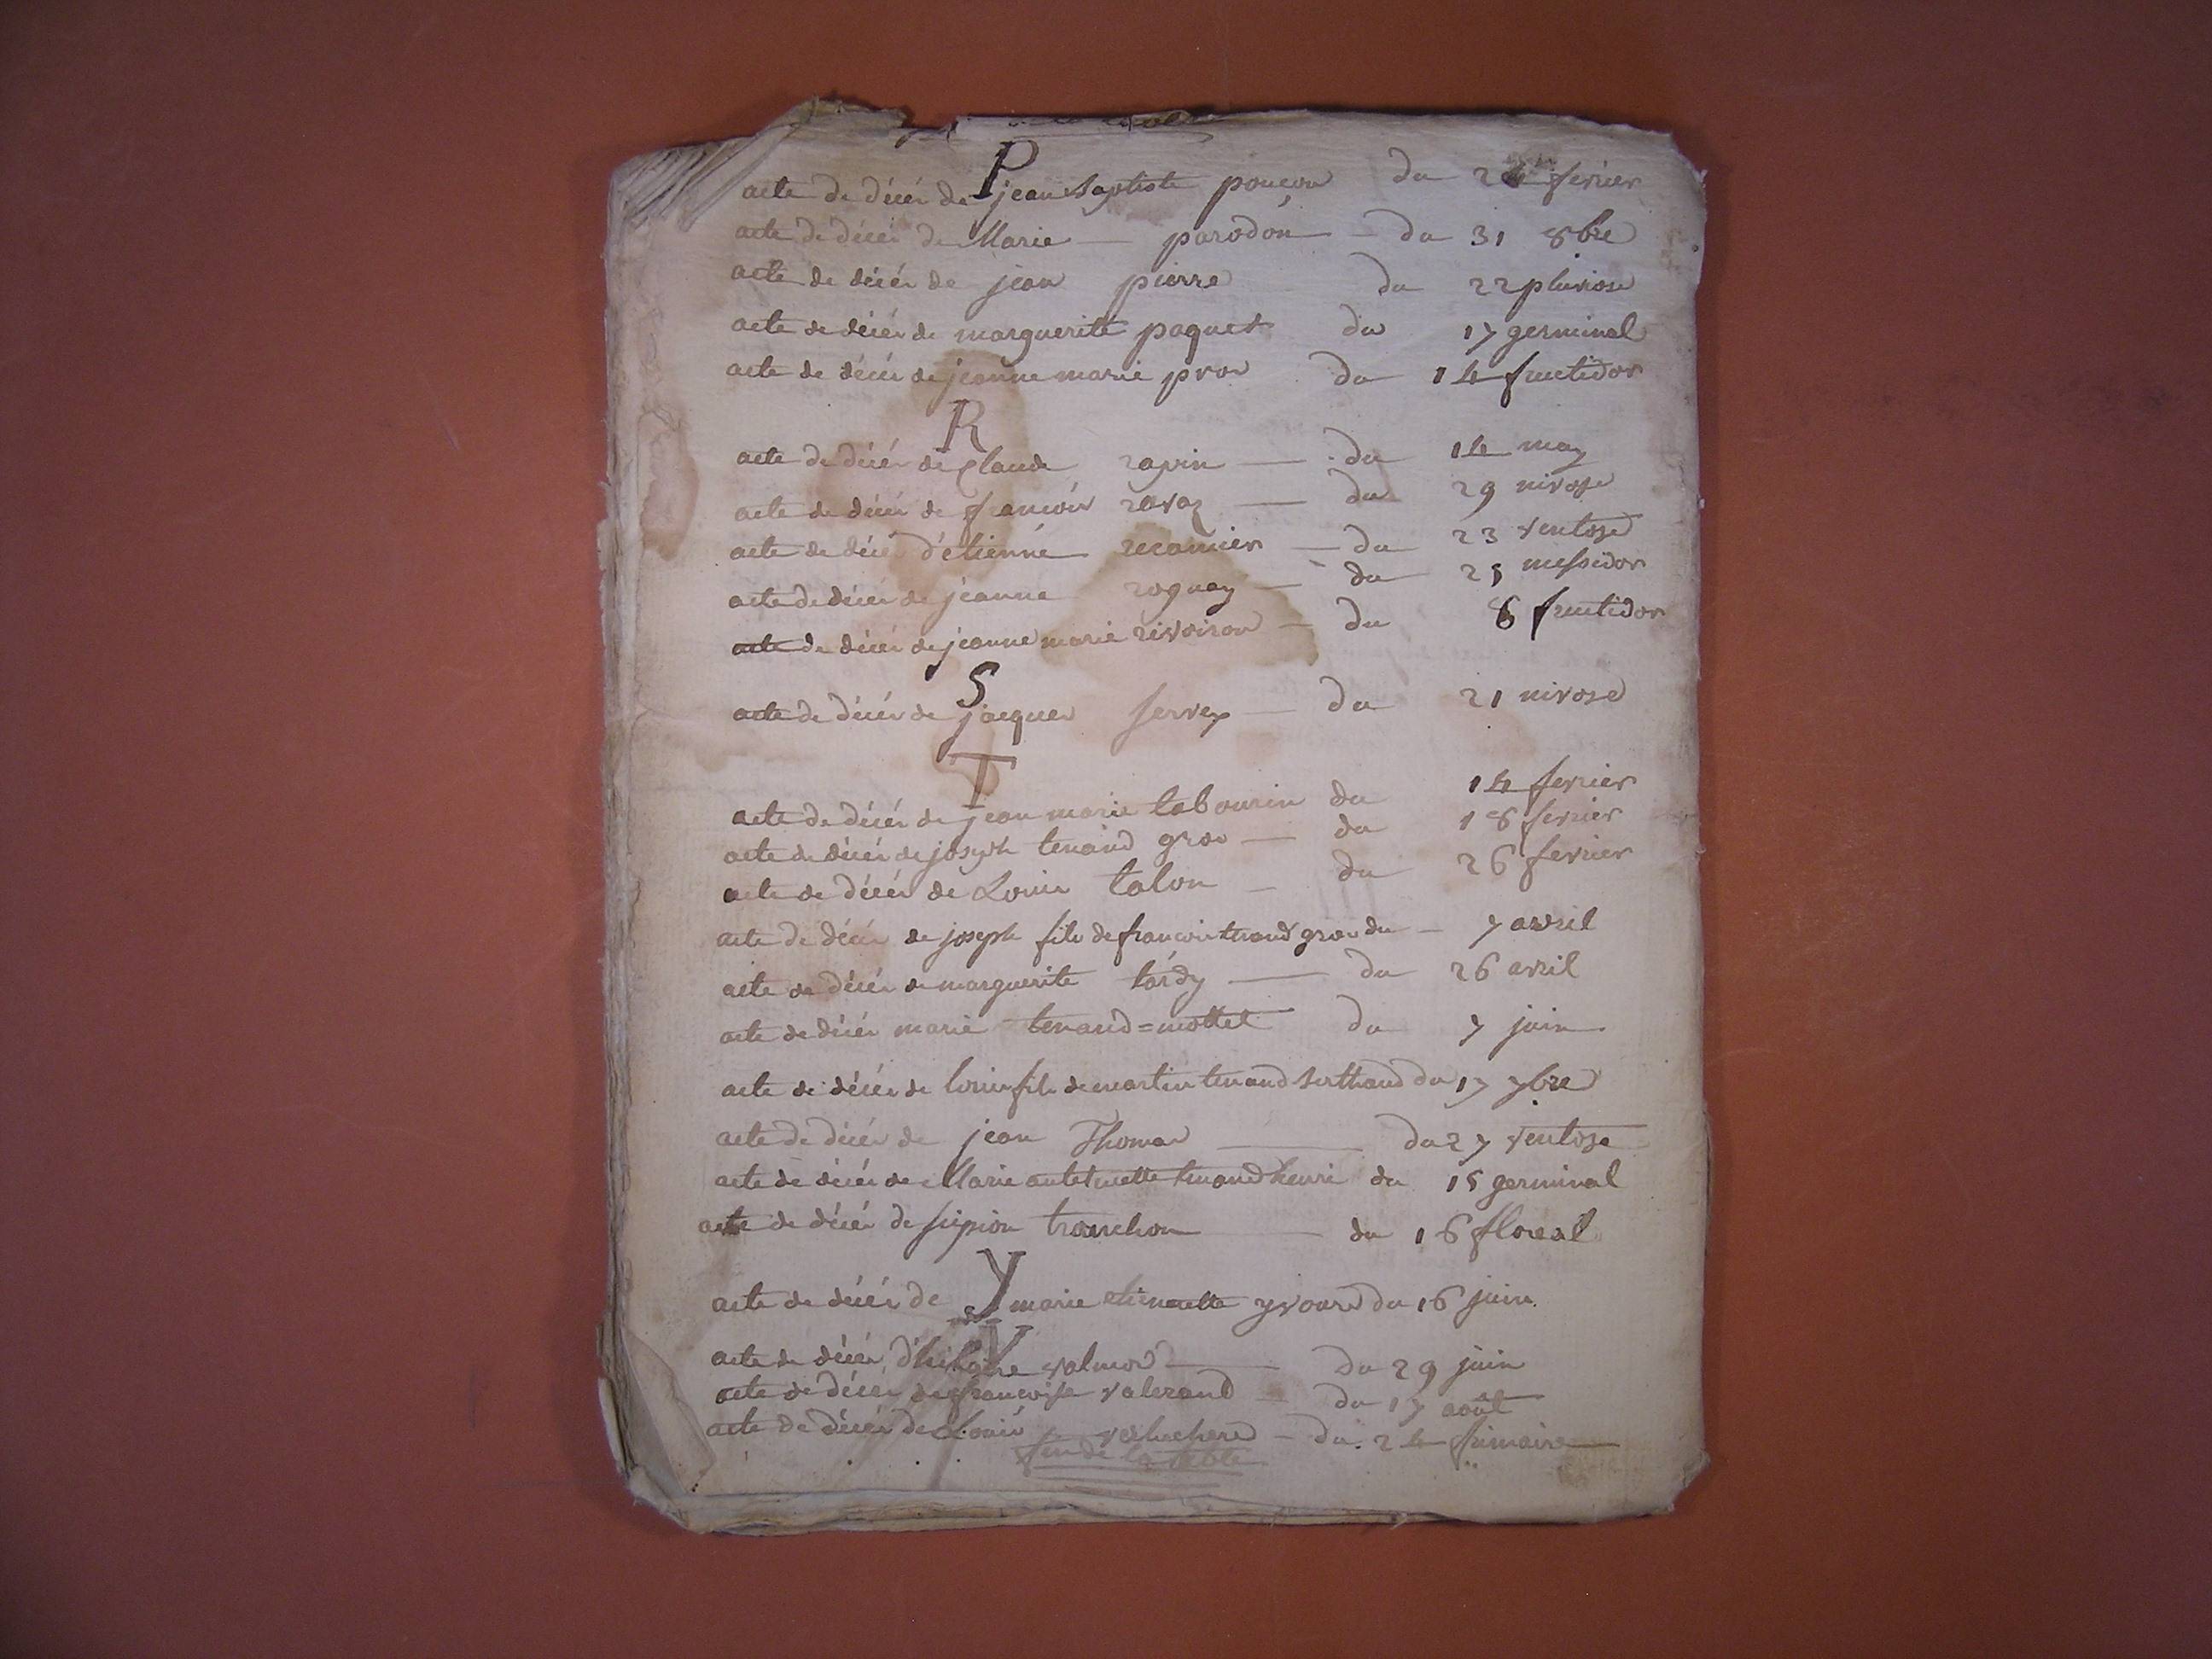 P
acte de décés de jean baptiste poncon du 24 fevrier
acte de décés de Marie parodon du 31 8bre
acte de décés de jean pierre du 22 pluviose
acte de décés de marguerite paquet du 17 germinal
acte de décés de jeanne marie pros du 14 fructidor
R
acte de décés de Claude ravin du 14 may
acte de décés de francois ravaz du 29 nivose
acte de décés d'étienne recamier du 23 ventose
acte de décés de jeanne rognay du 25 messidor
acte de décés de jeanne marie rivoiron du 6 fructidor
S
acte de décés de jacques servex du 21 nivose
T
acte de décés de jean marie tabourin du 14 fevrier
acte de décés de joseph tenand gros du 18 fevrier
acte de décés de Louis talon du 26 fevrier
acte de décés de joseph fils de francois tenand gros du 7 avril
acte de décés de marguerite tardy du 26 avril
acte de décés marie tenand=mottet du 7 juin
acte de décés de louis fils de martin tenand berthaud du 17 7bre
acte de décés de jean Thomas du 27 ventose
acte de décés de Marie antelmette tenand henri du 15 germinal
acte de décés de sipion tranchon du 16 floreal
Y
acte de décés de marie etiennette yvours du 16 juin
V
acte de décés d'hilaire valmod du 29 juin
acte de décés de francoise valerand du 17 août
acte de décés de Louis veluchere du 24 frimaire
fin de la table